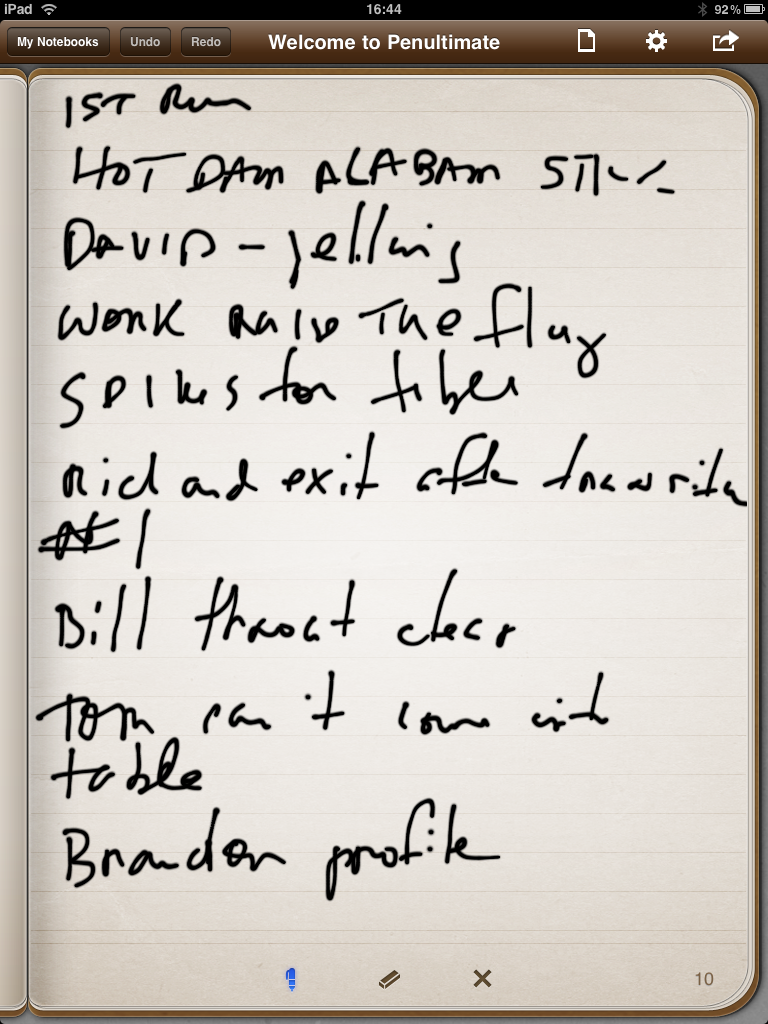 iPad 16:44 92%
My Notebooks Undo Redo Welcome to Penultimate
1ST Run
HOT DAM ALABAM
DAVID - yelling
WORK RAISE THE flag
SPIKES for
and exit after
#1
Bill throat clear
Tom can't come with
table
Brandon profile
10